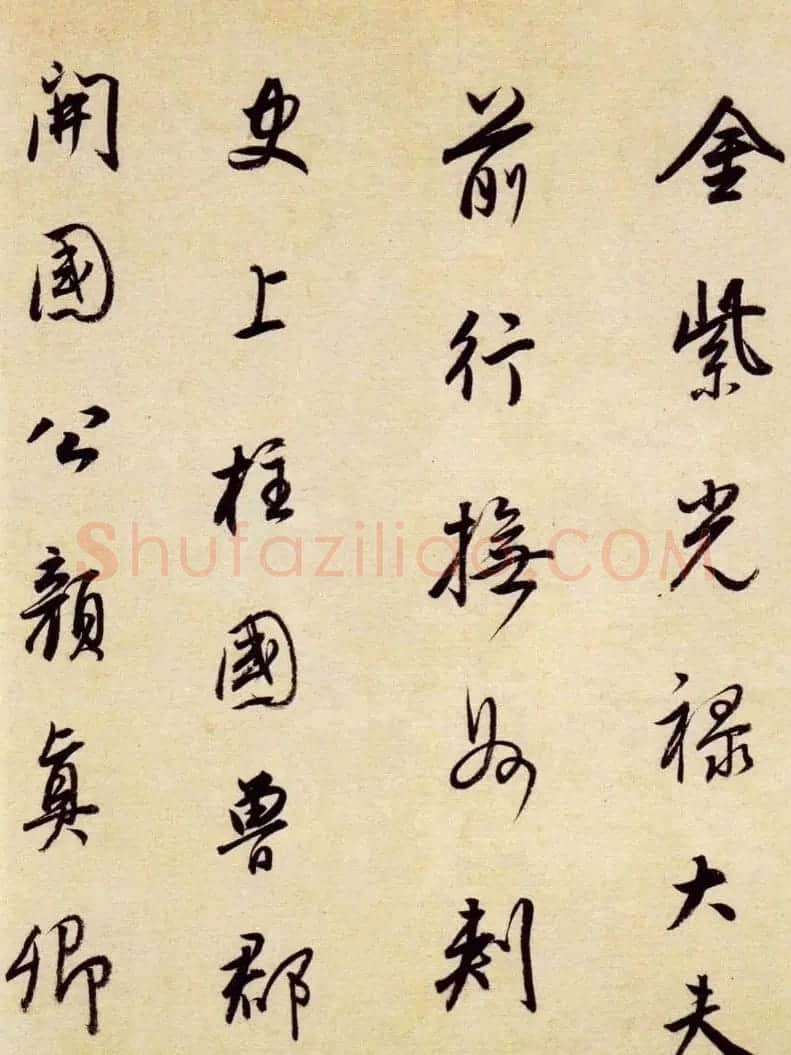 金紫光禄大夫
前行撫州刺
史上柱國魯郡
開國公顔真卿
Shufaziliao.COM